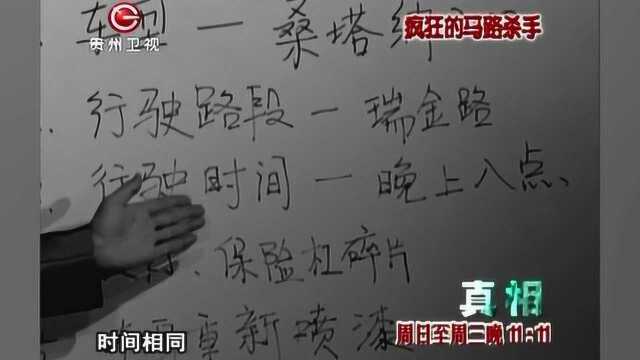 贵州卫视
疯狂的马路杀手
车型 — 桑塔纳
行驶路段 — 瑞金路
行驶时间 — 晚上八点
、保险杠碎片
重新喷漆
真相
周日至周二晚11:11
时间相同